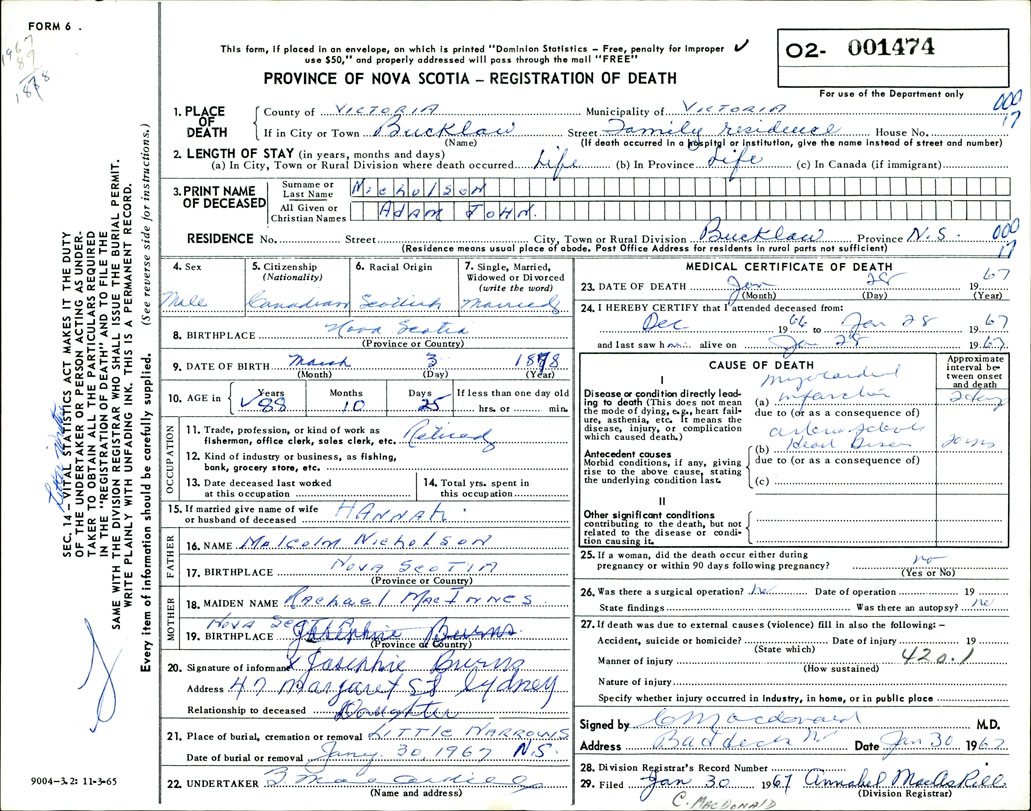 FORM 6 .
1967
89
1878
This form, if placed in an envelope, on which is printed "Dominion Statistics – Free, penalty for improper ✓
use $50," and properly addressed will pass through the mail "FREE"
PROVINCE OF NOVA SCOTIA – REGISTRATION OF DEATH
O2- 001474
For use of the Department only
000
17
1. PLACE OF DEATH
County of VICTORIA Municipality of VICTORIA
If in City or Town Bucklaw Street Family residence House No.
(Name) (If death occurred in a hospital or institution, give the name instead of street and number)
2. LENGTH OF STAY (in years, months and days)
(a) In City, Town or Rural Division where death occurred Life (b) In Province Life (c) In Canada (if immigrant)
3. PRINT NAME OF DECEASED
Surname or Last Name Nicholson
All Given or Christian Names ADAM JOHN.
RESIDENCE No. Street City, Town or Rural Division Bucklaw Province N.S. 000
17
(Residence means usual place of abode. Post Office Address for residents in rural parts not sufficient)
4. Sex
Male
5. Citizenship (Nationality)
Canadian
6. Racial Origin
Scottish
7. Single, Married, Widowed or Divorced (write the word)
Married
8. BIRTHPLACE Nova Scotia
(Province or Country)
9. DATE OF BIRTH March 3 1878
(Month) (Day) (Year)
10. AGE in Years Months Days If less than one day old
✓ 88 10 25 hrs. or min.
OCCUPATION
11. Trade, profession, or kind of work as fisherman, office clerk, sales clerk, etc. Retired
12. Kind of industry or business, as fishing, bank, grocery store, etc.
13. Date deceased last worked at this occupation
14. Total yrs. spent in this occupation
15. If married give name of wife or husband of deceased HANNAH.
FATHER
16. NAME Malcolm Nicholson
17. BIRTHPLACE NOVA SCOTIA
(Province or Country)
MOTHER
18. MAIDEN NAME Rachael MacINNES
NOVA SCOTIA
19. BIRTHPLACE Josephie Burns
(Province or Country)
20. Signature of informant X Josephie Burns
Address 47 Margaret St Sydney
Relationship to deceased Daughter
21. Place of burial, cremation or removal LITTLE NARROWS
Date of burial or removal Jany. 30, 1967 N.S.
22. UNDERTAKER
(Name and address)
MEDICAL CERTIFICATE OF DEATH
23. DATE OF DEATH Jan 28 1967
(Month) (Day) (Year)
24. I HEREBY CERTIFY that I attended deceased from:
Dec 1966 to Jan 28 1967
and last saw him alive on Jan 28 1967
CAUSE OF DEATH
Approximate interval between onset and death
I
Disease or condition directly leading to death (This does not mean the mode of dying, e.g., heart failure, asthenia, etc. It means the disease, injury, or complication which caused death.)
Myocardial
(a) infarction
due to (or as a consequence of)
Antecedent causes
Morbid conditions, if any, giving rise to the above cause, stating the underlying condition last.
(b) Heart Disease
due to (or as a consequence of)
(c)
II
Other significant conditions
contributing to the death, but not related to the disease or condition causing it.
25. If a woman, did the death occur either during pregnancy or within 90 days following pregnancy? no
(Yes or No)
26. Was there a surgical operation? no Date of operation 19
State findings Was there an autopsy? no
27. If death was due to external causes (violence) fill in also the following: –
Accident, suicide or homicide? Date of injury 19
(State which)
420.1
Manner of injury
(How sustained)
Nature of injury
Specify whether injury occurred in industry, in home, or in public place
Signed by C Macdonald M.D.
Address Baddeck NS Date Jan 30 1967
28. Division Registrar's Record Number
29. Filed Jan 30 1967 Annabel MacAskill
(Division Registrar)
C. MACDONALD
9004–3.2: 11-3-65
SEC. 14 – VITAL STATISTICS ACT MAKES IT THE DUTY
OF THE UNDERTAKER OR PERSON ACTING AS UNDER-
TAKER TO OBTAIN ALL THE PARTICULARS REQUIRED
IN THE "REGISTRATION OF DEATH" AND TO FILE THE
SAME WITH THE DIVISION REGISTRAR WHO SHALL ISSUE THE BURIAL PERMIT.
WRITE PLAINLY WITH UNFADING INK. THIS IS A PERMANENT RECORD.
Every item of information should be carefully supplied. (See reverse side for instructions.)